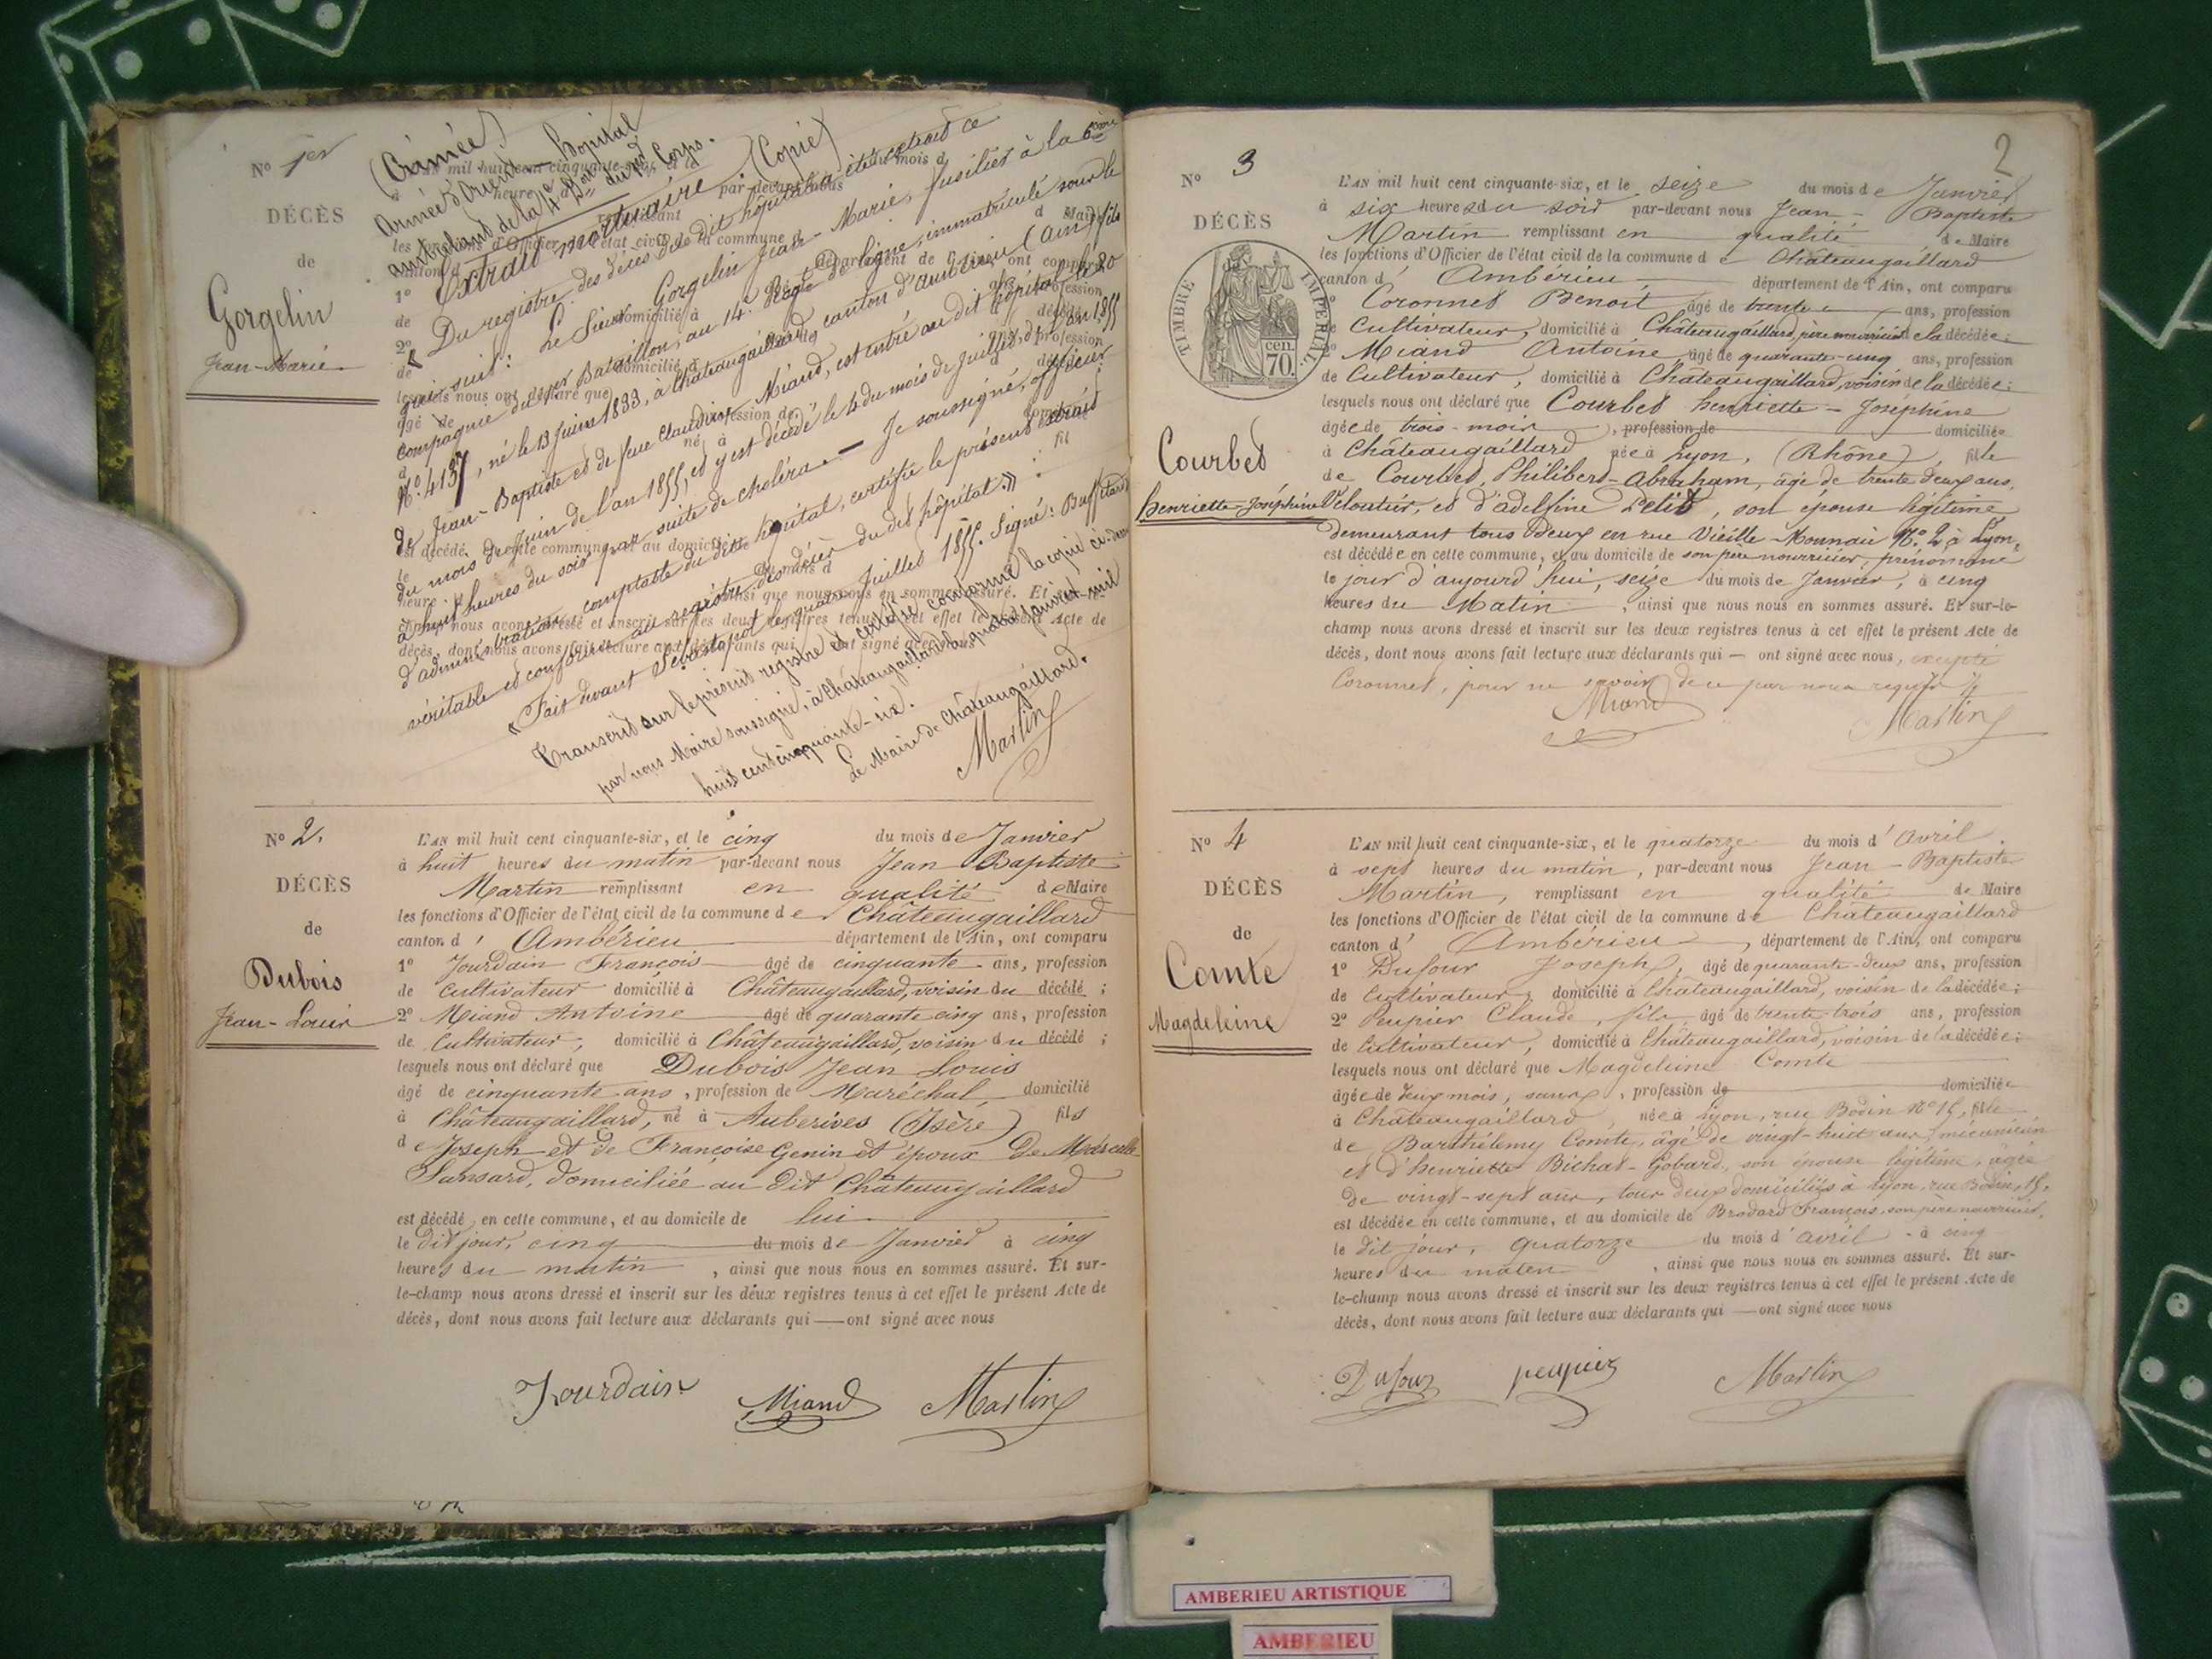 No 1er
DÉCÈS
de
Gorgelin
Jean-Marie
(Crimée)
Armée d'Orient — hôpital
ambulant de la 4e Don du 1er Corps.
Extrait mortuaire. (Copie)
« Du registre des décès du dit hôpital a été extrait ce
qui suit: Le Sieur Gorgelin Jean-Marie, fusilier à la 6ème
compagnie du 1er Bataillon, au 14e Regt de ligne, immatriculé sous le
No. 4137, né le 13 juin 1833, à Châteaugaillard canton d'ambérieu (ain) fils
de Jean-Baptiste et de feue Claudine Miand, est entré au dit hôpital le 30
du mois de juin de l'an 1855, et y est décédé le 4 du mois de juillet, d. an 1855
à huit heures du soir par suite de choléra. — Je soussigné, officier
d'administration comptable du dit hôpital, certifie le présent extrait
véritable et conforme au registre des décès du dit hôpital. »
« Fait devant Sébastopol le quatre Juillet 1855. Signé:
Transcrit sur le présent registre et certifié conforme la copie ci-dessus
par nous Maire soussigné, à Châteaugaillard le quatre Janvier mil
huit cent cinquante-six.
Le Maire de Châteaugaillard.
Martin
No 2.
DÉCÈS
de
Dubois
Jean-Louis
L'AN mil huit cent cinquante-six, et le cinq du mois de Janvier
à huit heures du matin par-devant nous Jean Baptiste
Martin remplissant en qualité de Maire
les fonctions d'Officier de l'état civil de la commune de Châteaugaillard
canton d' Ambérieu département de l'Ain, ont comparu
1° Jourdain François âgé de cinquante ans, profession
de cultivateur domicilié à Châteaugaillard, voisin du décédé ;
2° Miand Antoine âgé de quarante cinq ans, profession
de Cultivateur, domicilié à Châteaugaillard, voisin du décédé ;
lesquels nous ont déclaré que Dubois Jean Louis
âgé de cinquante ans, profession de Maréchal domicilié
à Châteaugaillard, né à Auberives (Isère) fils
de Joseph et de Françoise Genin et époux De
Sansard, domiciliée au dit Châteaugaillard
est décédé en cette commune, et au domicile de lui
le dit jour, cinq du mois de Janvier à cinq
heures du matin, ainsi que nous nous en sommes assuré. Et sur-
le-champ nous avons dressé et inscrit sur les deux registres tenus à cet effet le présent Acte de
décès, dont nous avons fait lecture aux déclarants qui — ont signé avec nous
Jourdain Miand Martin
2
No 3
DÉCÈS
TIMBRE IMPÉRIAL
70 cen.
Courbet
henriette-Joséphine
L'AN mil huit cent cinquante-six, et le seize du mois de Janvier
à six heures du soir par-devant nous Jean-Baptiste
Martin remplissant en qualité de Maire
les fonctions d'Officier de l'état civil de la commune de Châteaugaillard
canton d' Ambérieu département de l'Ain, ont comparu
1° Coronnet Benoit âgé de trente ans, profession
de Cultivateur, domicilié à Châteaugaillard, père nourricier de la décédée ;
2° Miand Antoine âgé de quarante-cinq ans, profession
de Cultivateur, domicilié à Châteaugaillard, voisin de la décédée ;
lesquels nous ont déclaré que Courbet henriette-Joséphine
âgée de trois-mois, profession de domiciliée
à Châteaugaillard née à Lyon, (Rhône), fille
de Courbet, Philibert-Abraham, âgé de trente deux ans,
Veloutier, et d'adelfine Petit, son épouse légitime
demeurant tous deux en rue Vieille-Monnaie No. 2 à Lyon,
est décédée en cette commune, et au domicile de son père nourricier, prénommé
le jour d'aujourd'hui, seize du mois de Janvier, à cinq
heures du Matin, ainsi que nous nous en sommes assuré. Et sur-le-
champ nous avons dressé et inscrit sur les deux registres tenus à cet effet le présent Acte de
décès, dont nous avons fait lecture aux déclarants qui — ont signé avec nous, excepté
Coronnet, pour ne savoir de ce par nous requis
Miand Martin
No 4
DÉCÈS
de
Comte
Magdeleine
L'AN mil huit cent cinquante-six, et le quatorze du mois d' Avril
à sept heures du matin, par-devant nous Jean-Baptiste
Martin, remplissant en qualité de Maire
les fonctions d'Officier de l'état civil de la commune de Châteaugaillard
canton d' Ambérieu, département de l'Ain, ont comparu
1° Dufour Joseph, âgé de quarante-deux ans, profession
de Cultivateur, domicilié à Châteaugaillard, voisin de la décédée ;
2° Peupier Claude, fils âgé de trente-trois ans, profession
de Cultivateur, domicilié à Châteaugaillard, voisin de la décédée ;
lesquels nous ont déclaré que Magdeleine Comte
âgée de deux mois, sans, profession de domiciliée
à Châteaugaillard, née à Lyon, rue Bodin No 15, fille
de Barthélemy Comte, âgé de vingt-huit ans, mécanicien
et d'henriette Bichat-Gobard, son épouse légitime, âgée
de vingt-sept ans, tous deux domiciliés à Lyon, rue Bodin, 15.
est décédée en cette commune, et au domicile de Brodard François, son père nourricier,
le dit jour, quatorze du mois d' avril - à cinq
heures du matin, ainsi que nous nous en sommes assuré. Et sur-
le-champ nous avons dressé et inscrit sur les deux registres tenus à cet effet le présent Acte de
décès, dont nous avons fait lecture aux déclarants qui — ont signé avec nous
Dufour peupier Martin
AMBERIEU ARTISTIQUE
AMBERIEU